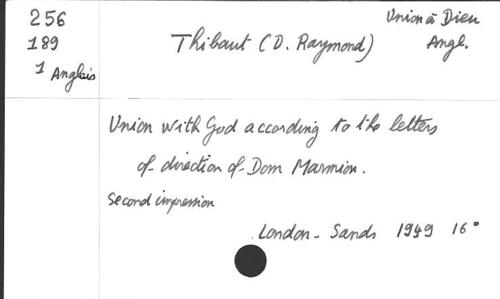 256
189
1 Anglais
Thibaut (D. Raymond)
Union à Dieu
Angl.
Union with God according to the letters
of direction of Dom Marmion.
Second impression
London - Sands 1949 16°